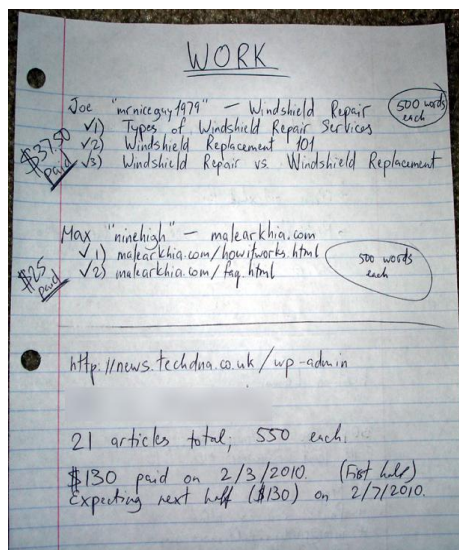 WORK
Joe "mrniceguy1979" — Windshield Repair
500 words each
✓1) Types of Windshield Repair Services
✓2) Windshield Replacement 101
✓3) Windshield Repair vs. Windshield Replacement
$37.50 paid
Max "ninehigh" — malearkhia.com
✓1) malearkhia.com/howitworks.html
✓2) malearkhia.com/faq.html
500 words each
$25 paid
http://news.techdna.co.uk/wp-admin
21 articles total; 550 each.
$130 paid on 2/3/2010. (First half)
Expecting next half ($130) on 2/7/2010.